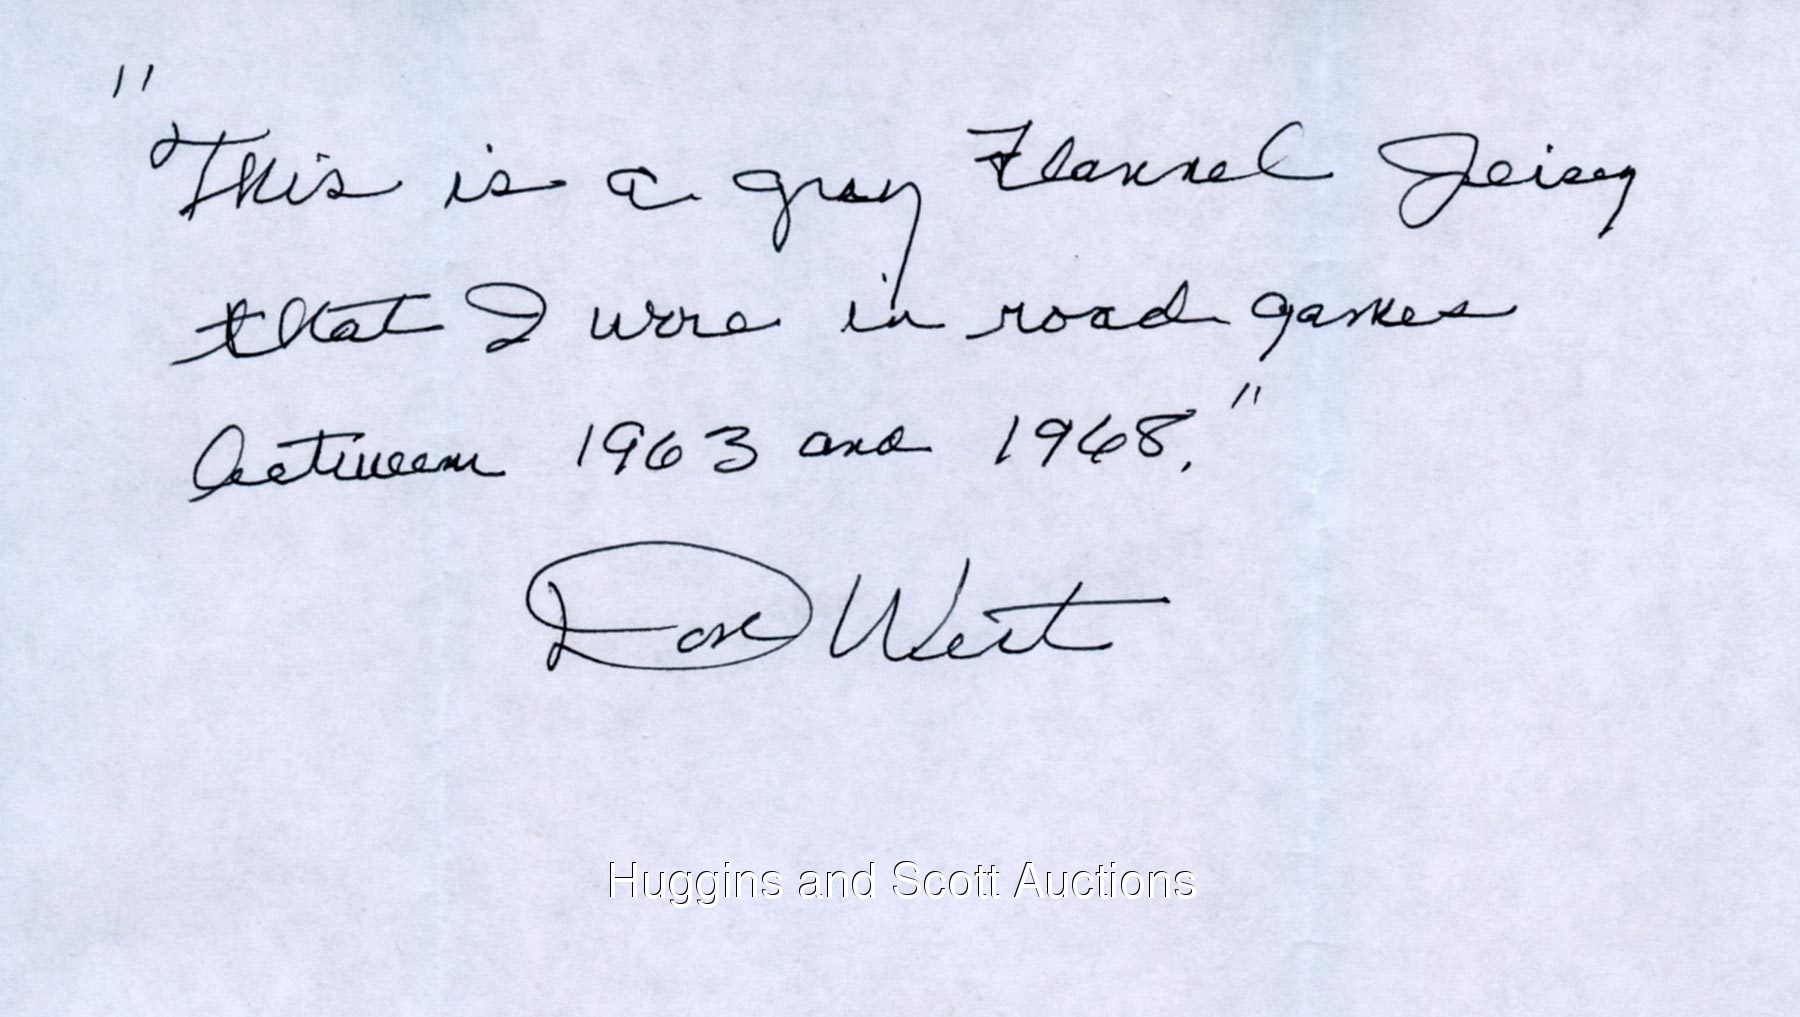 "This is a gray Flannel Jersey
that I wore in road games
between 1963 and 1968."
Don Wert
Huggins and Scott Auctions